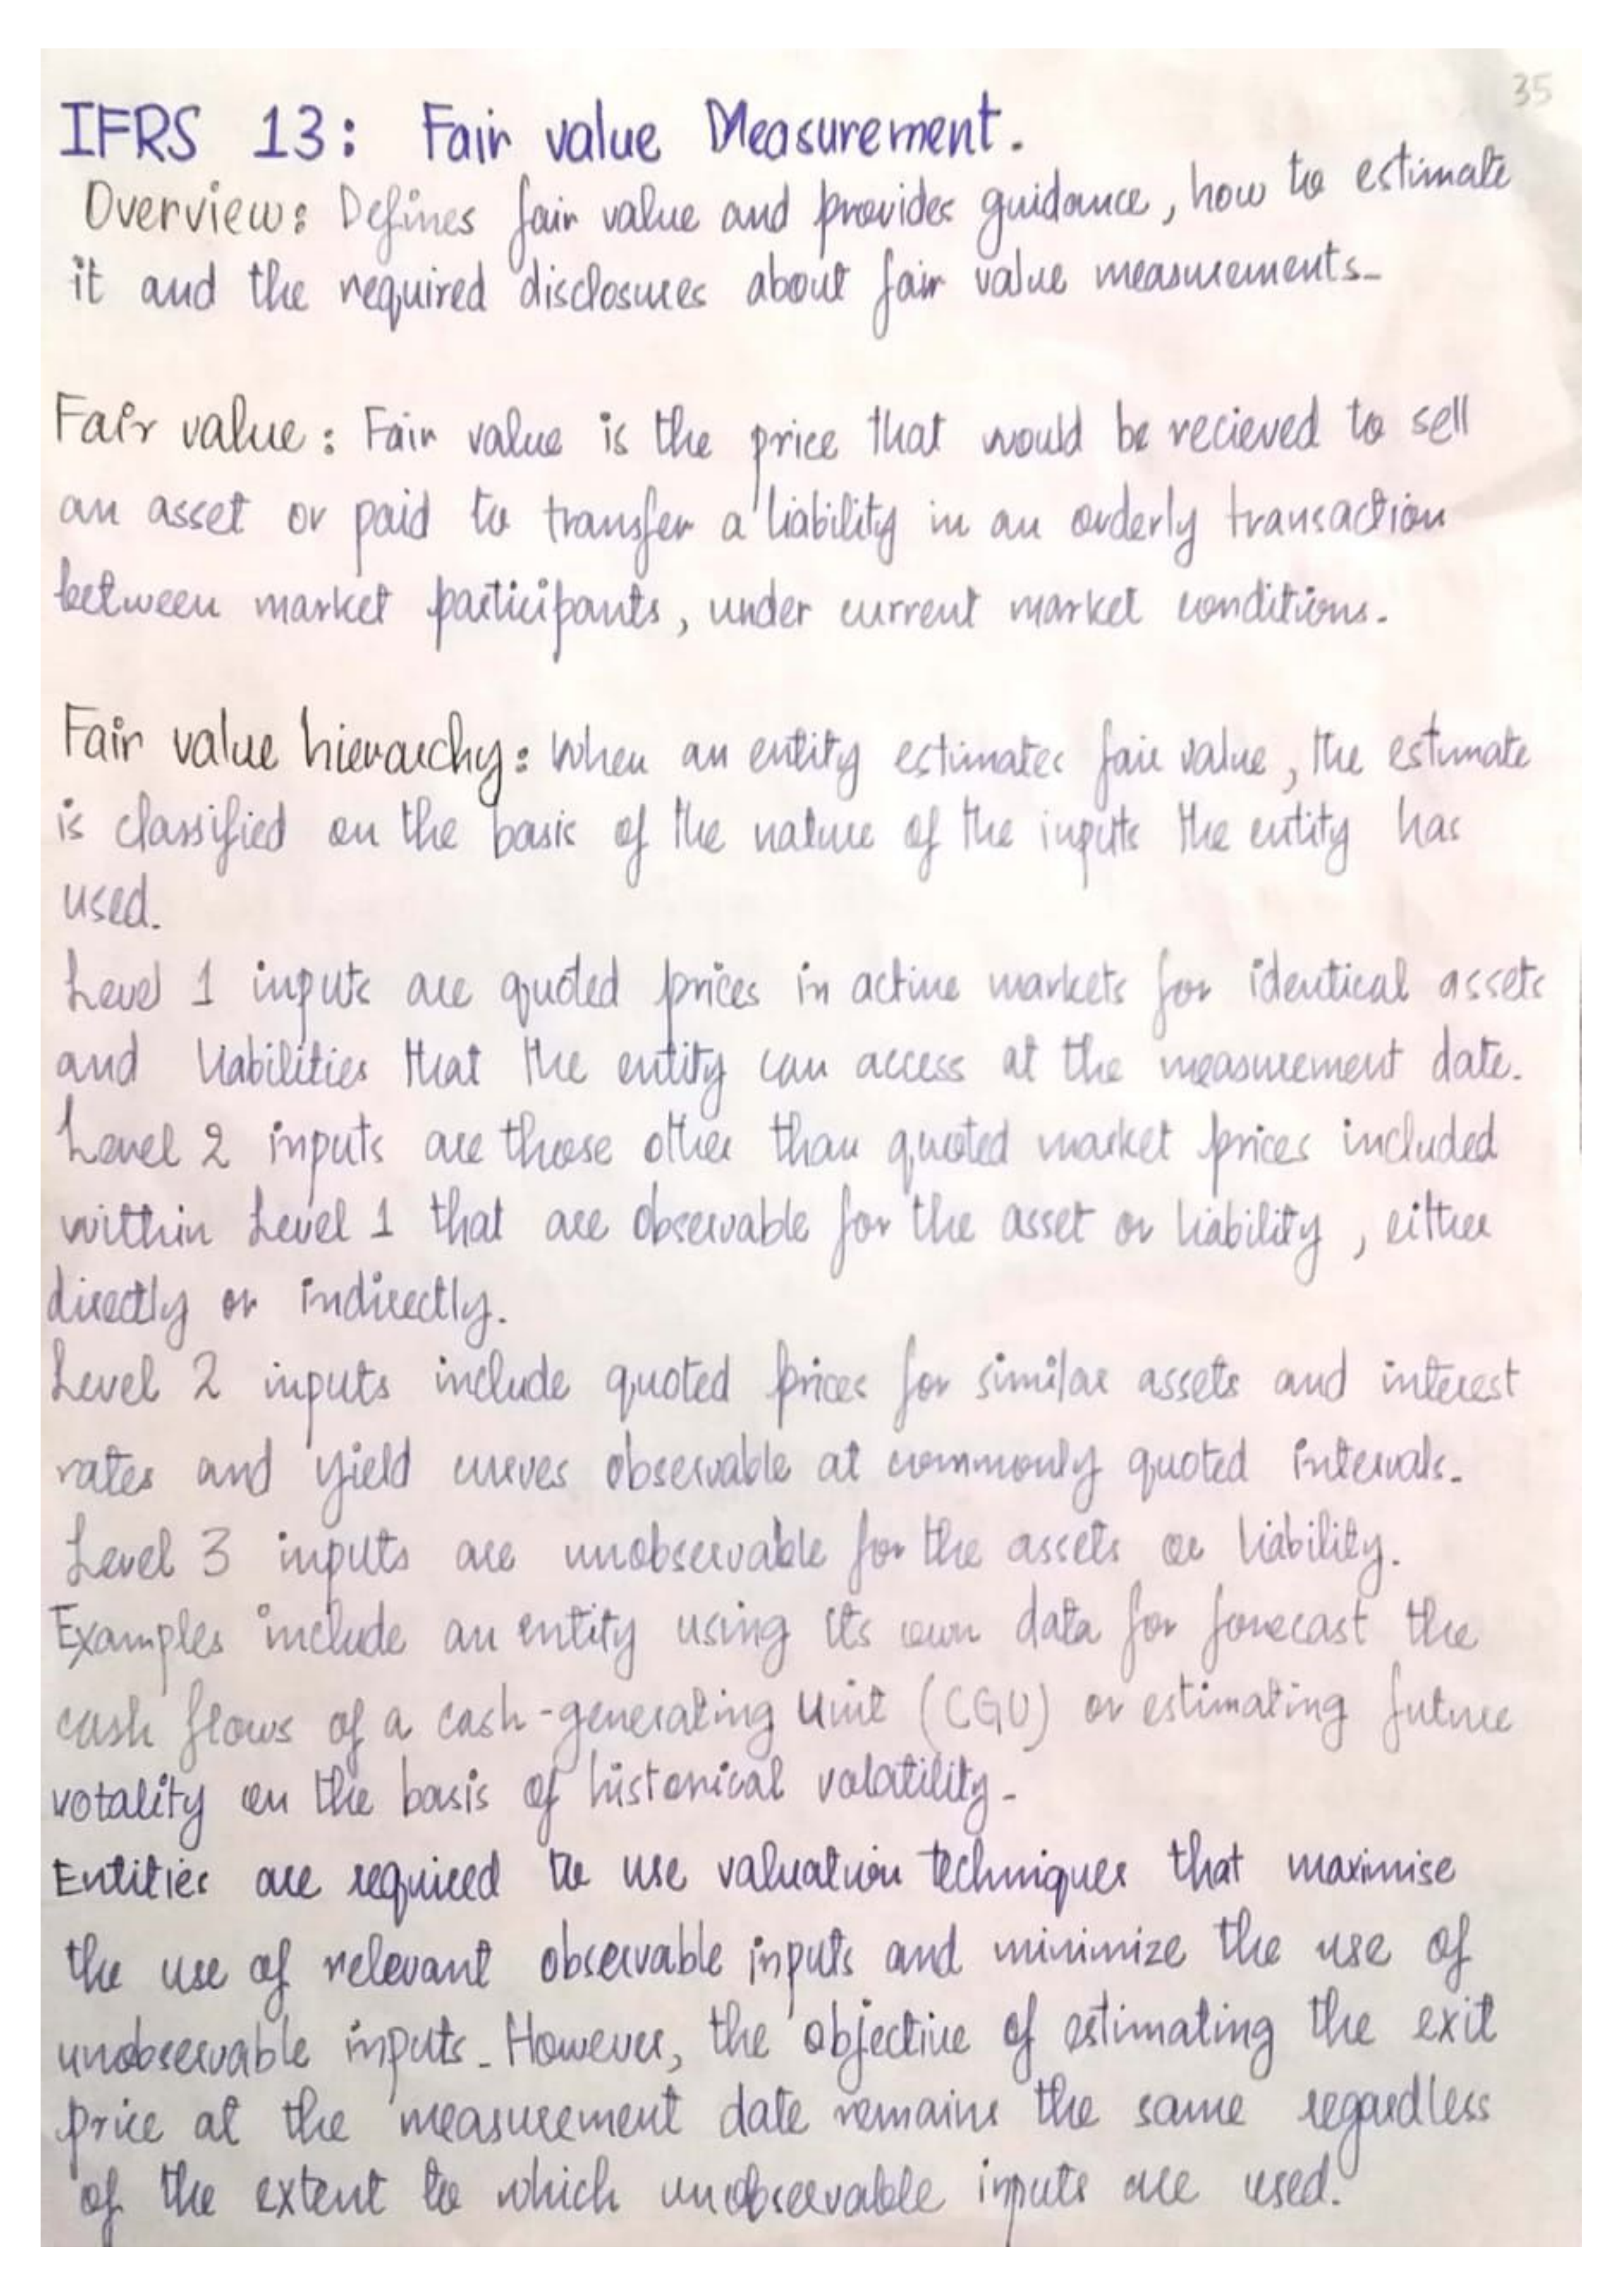 35
IFRS 13: Fair value Measurement.
Overview: Defines fair value and provides guidance, how to estimate
it and the required disclosures about fair value measurements.
Fair value: Fair value is the price that would be recieved to sell
an asset or paid to transfer a liability in an orderly transaction
between market participants, under current market conditions.
Fair value hierarchy: When an entity estimates fair value, the estimate
is classified on the basis of the nature of the inputs the entity has
used.
Level 1 inputs are quoted prices in active markets for identical assets
and liabilities that the entity can access at the measurement date.
Level 2 inputs are those other than quoted market prices included
within Level 1 that are observable for the asset or liability, either
directly or indirectly.
Level 2 inputs include quoted prices for similar assets and interest
rates and yield curves observable at commonly quoted intervals.
Level 3 inputs are unobservable for the assets or liability.
Examples include an entity using its own data for forecast the
cash flows of a cash-generating unit (CGU) or estimating future
votality on the basis of historical volatility.
Entities are required to use valuation techniques that maximise
the use of relevant observable inputs and minimize the use of
unobservable inputs. However, the objective of estimating the exit
price at the measurement date remains the same regardless
of the extent to which unobservable inputs are used.